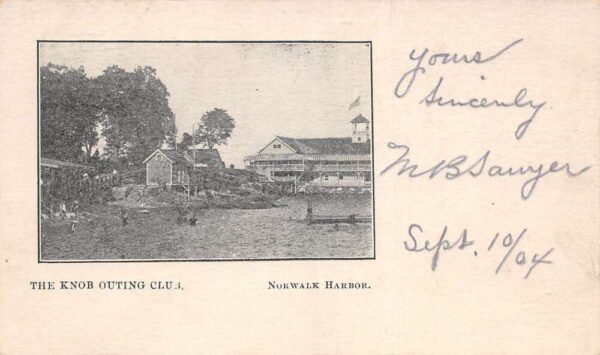 Yours
Sincerely
M B Sawyer
Sept. 10/04
THE KNOB OUTING CLUB, NORWALK HARBOR.